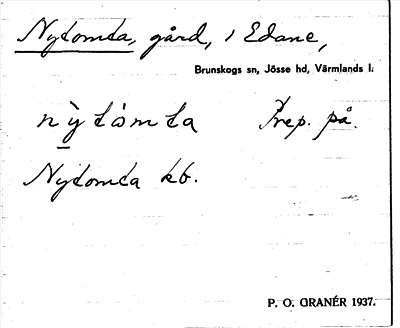 Nytomta, gård, i Edane,
Brunskogs sn, Jösse hd, Värmlands l.
nỳtòmta Prep. på.
Nytomta kb.
P. O. GRANÉR 1937.